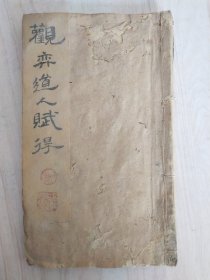 觀弈道人賦得